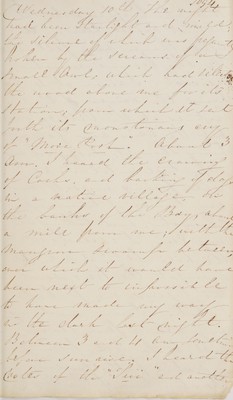 Wednesday 10th. The night
had been starlight and bright,
the silence of which was
broken by the screams of
small Owl, which had
the wood above me for its
station, from whence it sent
forth its monotonous cry
of "More Pork". About 3
a.m. I heard the crowing
of Cocks, and barking of dogs
in a native village, on
the banks of the Bay, about
a mile from me, with the
Mangrove between,
over which it would have
been next to impossible
to have made my way
in the dark last night.
Between 3 and 4
before sunrise, I heard the
notes of the "Tui" and